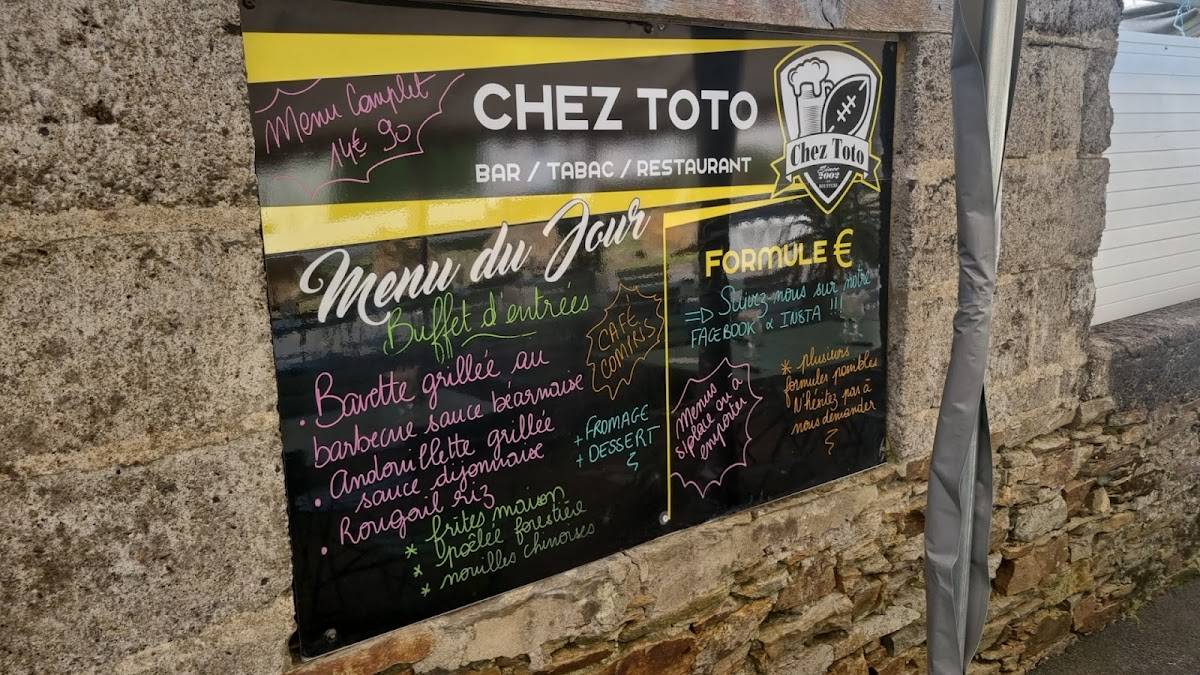 Menu Complet
14€ 90
CHEZ TOTO
BAR / TABAC / RESTAURANT
Chez Toto
Since
2002
Menu du Jour
Buffet d'entrées
• Bavette grillée au
barbecue sauce béarnaise
• Andouillette grillée
sauce dijonnaise
• Rougail riz
* frites maison
* poêlée forestière
* nouilles chinoises
CAFÉ
COMPRIS
+ FROMAGE
+ DESSERT
FORMULE €
=D Suivez-nous sur notre
FACEBOOK & INSTA !!!
Menus
s/place ou à
emporter
* plusieurs
formules possibles
N'hésitez pas à
nous demander